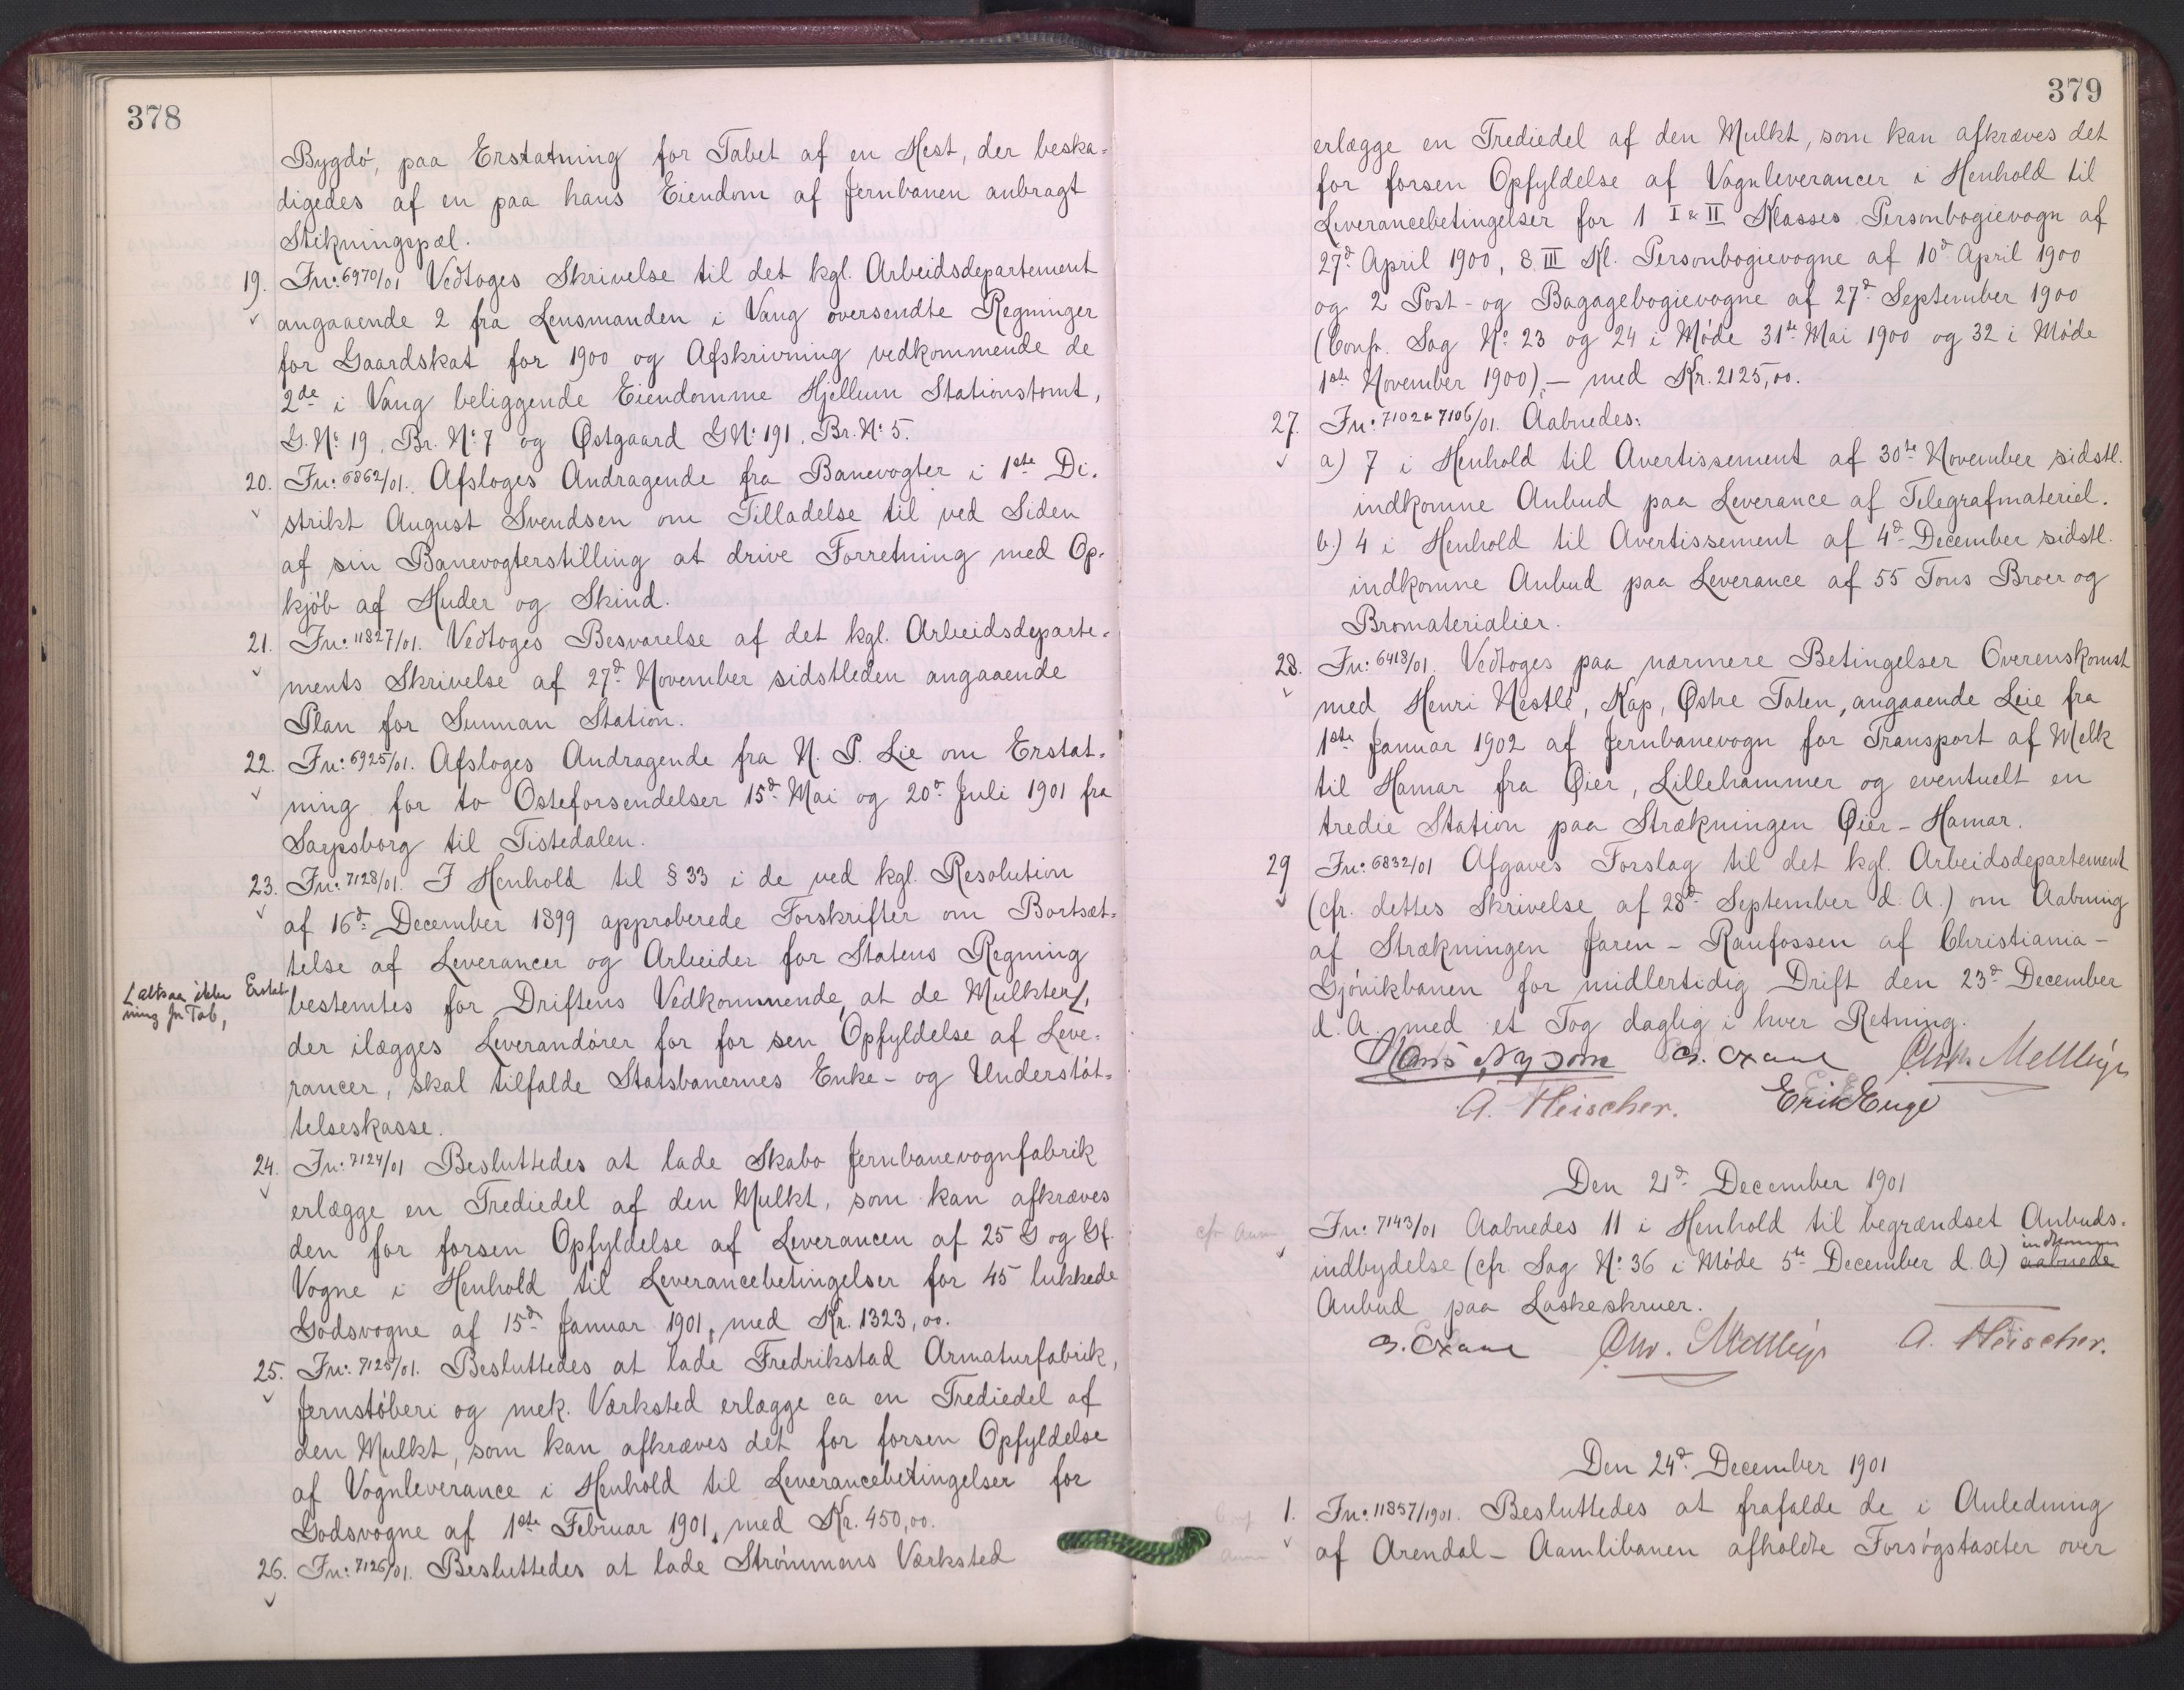 378
Bygdö, paa Erstatning for Tabet af en Hest, der beska-
digedes af en paa hans Eiendom af Jernbanen anbragt
Stikningspæl.
19. Jn: 6970/01 Vedtoges Skrivelse til det kgl. Arbeidsdepartement
angaaende 2 fra Lensmanden i Vang oversendte Regninger
for Gaardskat for 1900 og Afskrivning vedkommende de
2de i Vang beliggende Eiendomme Hjellum Stationstomt,
G.No 19, Br. No 7 og Østgaard GNo 191, Br. No 5.
20. Jn: 6862/01. Afsloges Andragende fra Banevogter i 1ste Di-
strikt August Svendsen om Tilladelse til ved Siden
af sin Banevogterstilling at drive Forretning med Op-
kjöb af Huder og Skind.
21. Jn: 11827/01. Vedtoges Besvarelse af det kgl. Arbeidsdeparte-
ments Skrivelse af 27d November sidstleden angaaende
Plan for Sunnan Station.
22. Jn: 6925/01. Afsloges Andragende fra N. P. Lie om Erstat-
ning for to Osteforsendelser 15d Mai og 20d Juli 1901 fra
Sarpsborg til Tistedalen.
23. Jn: 7128/01. I Henhold til § 33 i de ved kgl. Resolution
af 16d December 1899 approberede Forskrifter om Bortsæt-
telse af Leverancer og Arbeider for Statens Regning
bestemtes for Driftens Vedkommende, at de Mulkter,
altsaa ikke Erstat-
ning for Tab,
der ilægges Leverandörer for for sen Opfyldelse af Leve-
rancer, skal tilfalde Statsbanernes Enke- og Understöt-
telseskasse.
24. Jn: 7124/01 Besluttedes at lade Skabo Jernbanevognfabrik
erlægge en Trediedel af den Mulkt, som kan afkræves
den for forsen Opfyldelse af Leverancen af 25 G og Gf.
Vogne i Henhold til Leverancebetingelser for 45 lukkede
Godsvogne af 15d Januar 1901, med Kr. 1323,00.
25. Jn: 7125/01. Besluttedes at lade Fredrikstad Armaturfabrik,
Jernstöberi og mek. Værksted erlægge ca en Trediedel af
den Mulkt, som kan afkræves det for forsen Opfyldelse
af Vognleverance i Henhold til Leverancebetingelser for
Godsvogne af 1ste Februar 1901, med Kr. 450,00.
26. Jn: 7126/01. Besluttedes at lade Strömmens Værksted
379
erlægge en Trediedel af den Mulkt, som kan afkræves det
for forsen Opfyldelse af Vognleverancer i Henhold til
Leverancebetingelser for 1 I & II Klasses Personbogievogn af
27d April 1900, 8 III Kl. Personbogievogne af 10d April 1900
og 2 Post- og Bagagebogievogne af 27d September 1900
(Conf. Sag No 23 og 24 i Möde 31te Mai 1900 og 32 i Möde
1ste November 1900), — med Kr. 2125,00.
27. Jn: 7102 & 7106/01. Aabnedes:
a) 7 i Henhold til Avertissement af 30te November sidstl.
indkomne Anbud paa Leverance af Telegrafmateriel.
b.) 4 i Henhold til Avertissement af 4d December sidstl.
indkomne Anbud paa Leverance af 55 Tons Broer og
Bromaterialier.
28. Jn: 6418/01. Vedtoges paa nærmere Betingelser Overenskomst
med Henri Nestlé, Kap, Østre Toten, angaaende Leie fra
1ste Januar 1902 af Jernbanevogn for Transport af Melk
til Hamar fra Øier, Lillehammer og eventuelt en
tredie Station paa Strækningen Øier - Hamar.
29 Jn: 6832/01 Afgaves Forslag til det kgl. Arbeidsdepartement
(cfr. dettes Skrivelse af 28d September d. A.) om Aabning
af Strækningen Jaren - Raufossen af Christiania-
Gjövikbanen for midlertidig Drift den 23d December
d. A. med et Tog daglig i hver Retning.
Hans Nysom
A. Fleischer. Erik Enge
Den 21d December 1901
cfr. Jn: 7143/01 Aabnedes 11 i Henhold til begrændset Anbuds-
indkomne
indbydelse (cfr Sag No 36 i Möde 5te December d. A.) aabnede
Anbud paa Laskeskruer.
A. Fleischer.
Den 24d December 1901
1. Jn: 11857/1901. Besluttedes at frafalde de i Anledning
af Arendal - Aamlibanen afholdte Forsögstaxter over